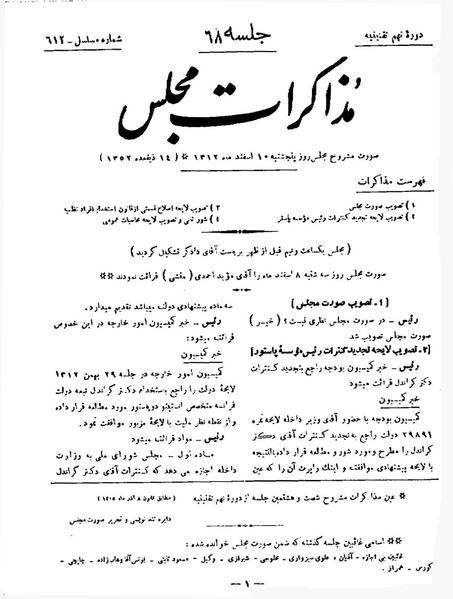 دورهٔ نهم تقنینیه
جلسه ۶۸
شماره مسلسل - ۶۱۲
مذاکرات مجلس
صورت مشروح مجلس روز پنجشنبه ۱۰ اسفند ماه ۱۳۱۲ * ( ۱۴ ذیقعده ۱۳۵۲ )
فهرست مذاکرات
۱ ) تصویب صورت مجلس
۲ ) تصویب لایحه تجدید کنترات رئیس مؤسسه پاستور
۳ ) تصویب لایحه اصلاح قسمتی از قانون استخدام افراد نظمیه
۴ ) شور ثانی و تصویب لایحه محاسبات عمومی
( مجلس یکساعت ونیم قبل از ظهر بریاست آقای دادگر تشکیل گردید )
صورت مجلس روز سه شنبه ۸ اسفند ماه را آقای مؤید احمدی ( منشی ) قرائت نمودند
[ ۱ - تصویب صورت مجلس ]
رئیس - در صورت مجلس نظری نیست ؟ ( خیر )
صورت مجلس تصویب شد
[ ۲ - تصویب لایحه تجدید کنترات رئیس مؤسسهٔ پاستور ]
رئیس - خبر کمیسیون بودجه راجع بتجدید کنترات
دکتر کراندل قرائت میشود
خبر کمیسیون
کمیسیون بودجه با حضور آقای وزیر داخله لایحه نمره
۲۹۸۹۱ دولت راجع به تجدید کنترات آقای دکتر
کراندل را مطرح ومورد شور و مطالعه قرار داده بالنتیجه
با لایحه پیشنهادی موافقت و اینک راپرت آن را که عین
سه ماده پیشنهادی دولت میباشد تقدیم میدارد.
رئیس - خبر کمیسیون امور خارجه در این خصوص
قرائت میشود:
خبر کمیسیون
کمیسیون امور خارجه در جلسه ۲۹ بهمن ۱۳۱۲
لایحهٔ دولت را راجع باستخدام دکتر کراندل تبعه دولت
فرانسه متخصص انستیتو دوپاستور مورد مطالعه قرار داده
و از نقطه نظر ملیت با لایحهٔ مزبور موافقت نمود.
رئیس - مواد قرائت میشود
ماده اول - مجلس شورای ملی به وزارت
داخله اجازه می دهد که کنترات آقای دکتر کراندل
* عین مذاکرات مشروح شصت و هشتمین جلسه از دورهٔ نهم تقنینیه
( مطابق قانون ۸ آذر ماه ۱۳۰۵ )
دایره تند نویسی و تحریر صورت مجلس
** اسامی غائبین جلسه گذشته که ضمن صورت مجلس خوانده شده :
غائبین بی اجازه - آقایان : علوی سبزواری - مخوچی - شیرازی - وکیل - مسعود ثابتی - یونس آقا وهاب زاده - چایچی -
کورس - همراز .
- ۱ -